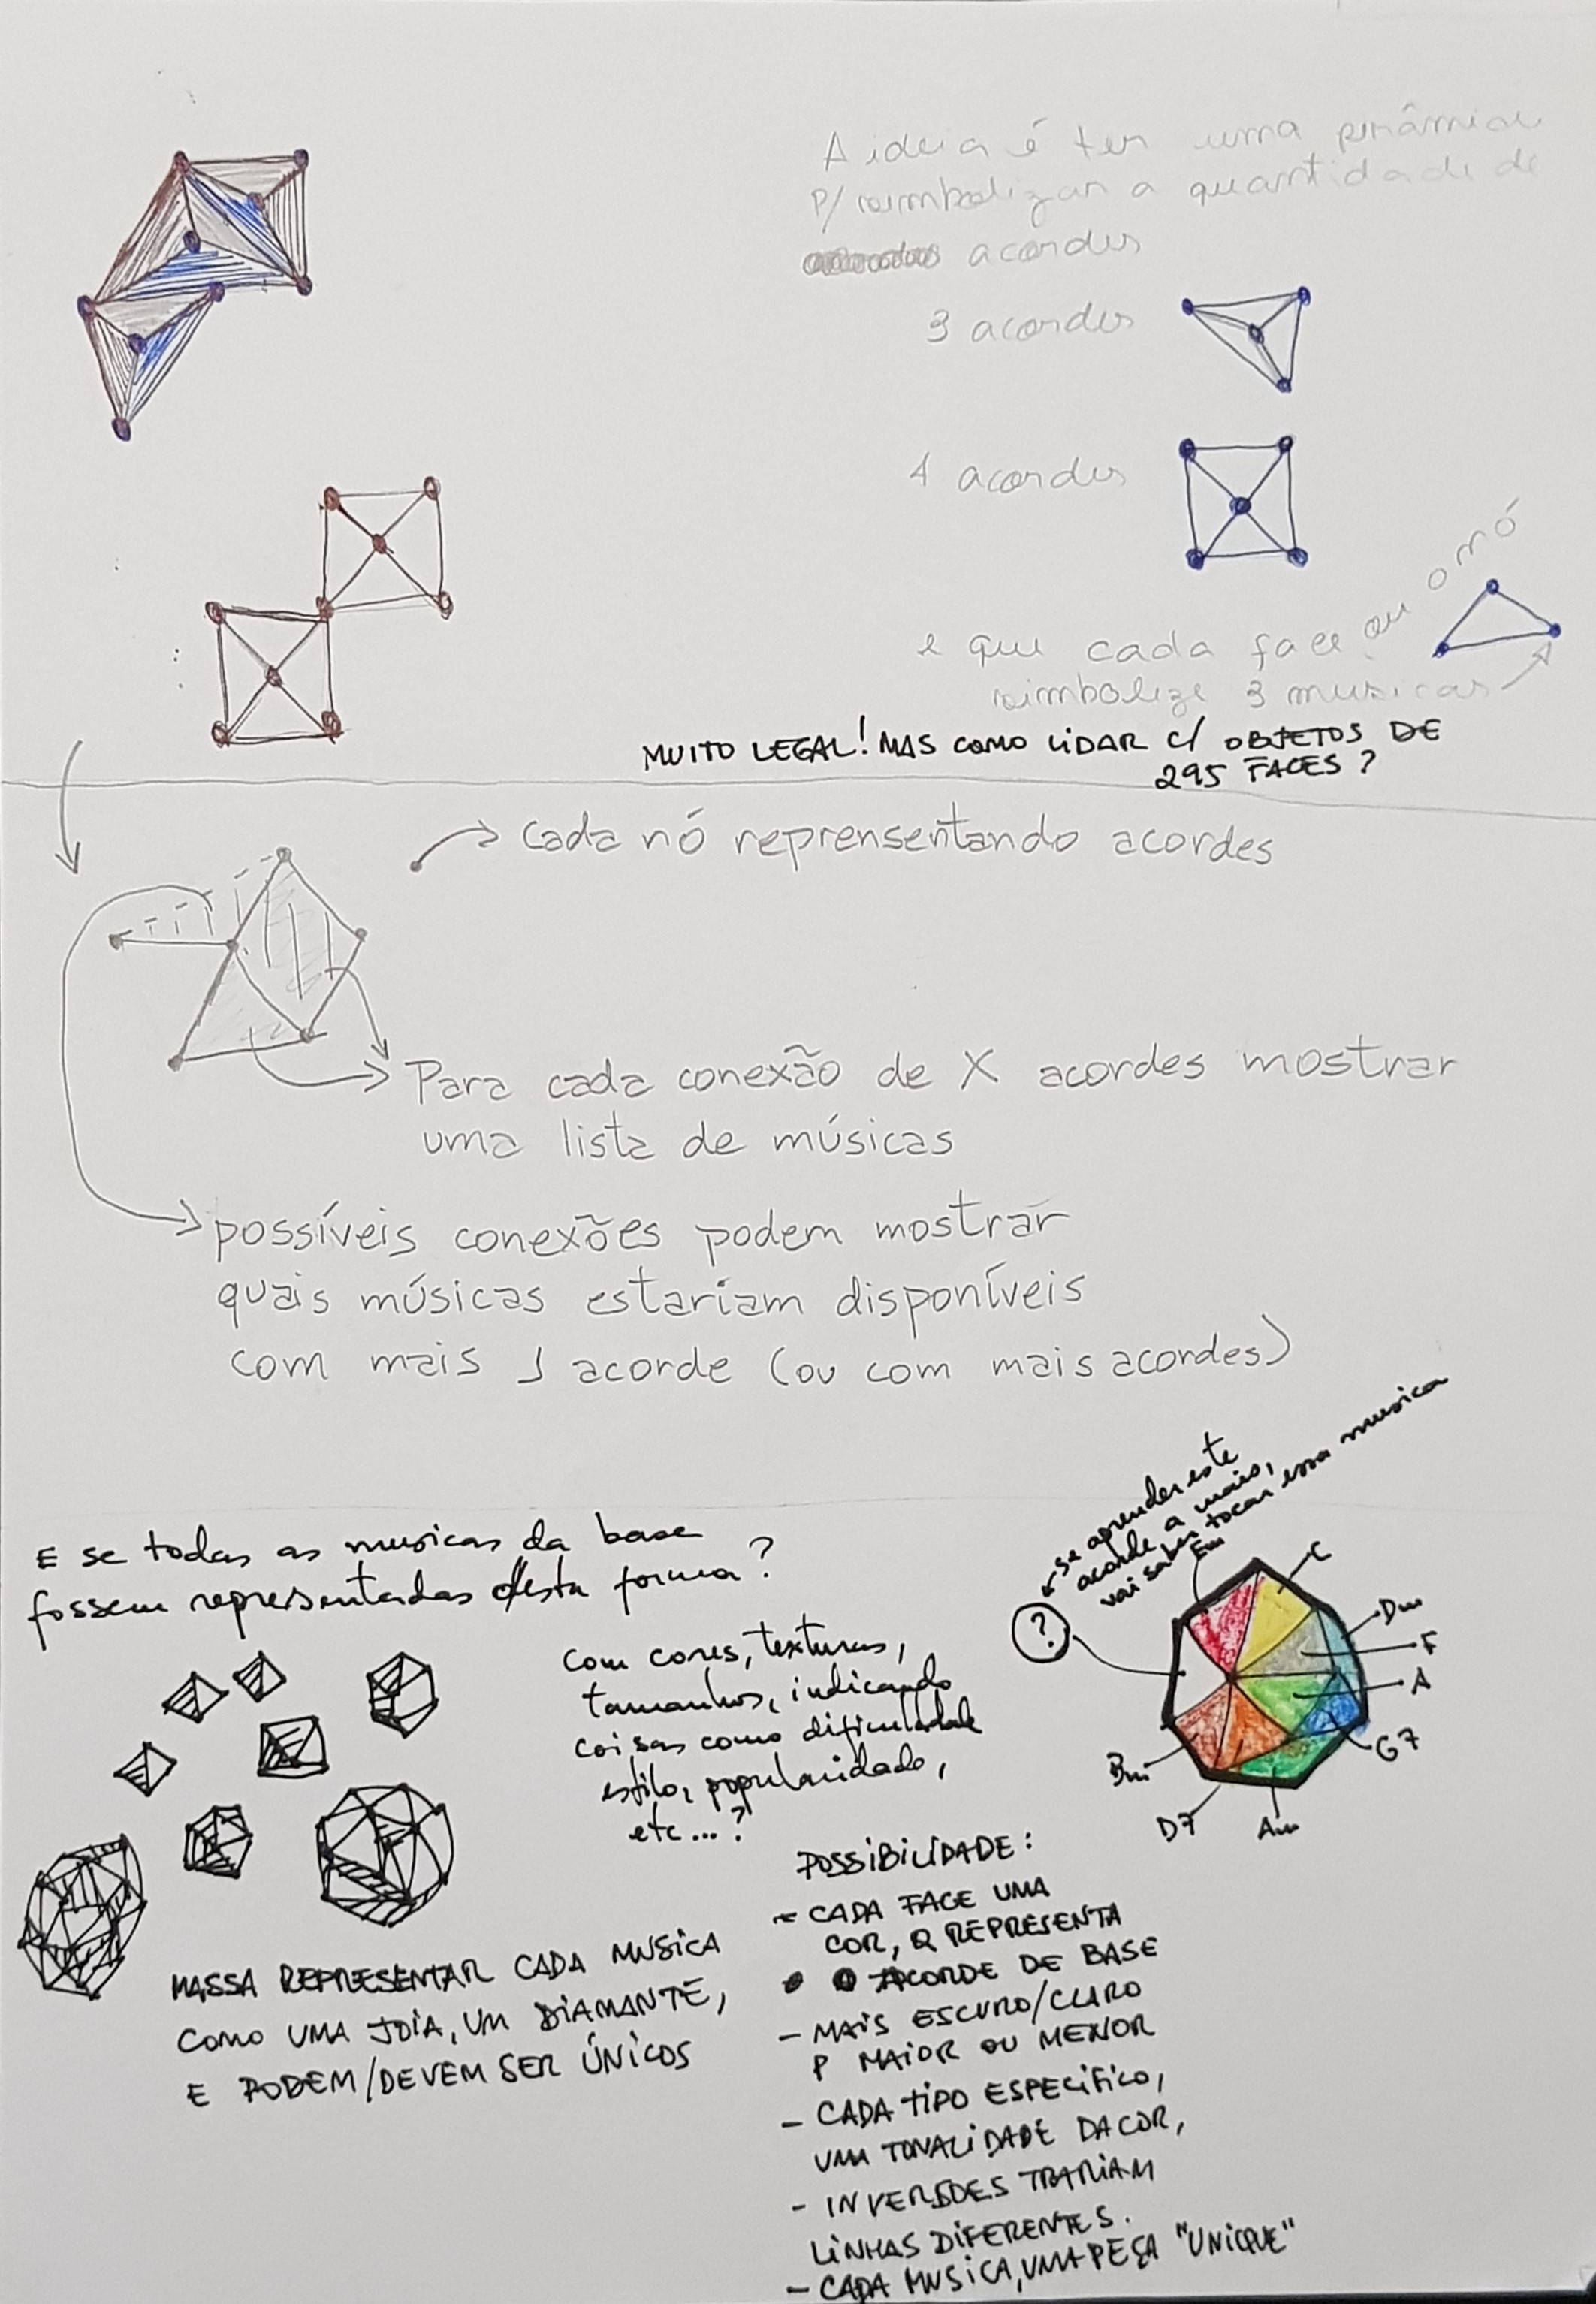 A ideia é ter uma pirâmide
P/ simbolizar a quantidade de
acordes
3 acordes
4 acordes
e que cada face ou o nó
simbolize 3 musicas
MUITO LEGAL! MAS COMO LIDAR C/ OBJETOS DE
295 FACES?
cada nó reprensentando acordes
Para cada conexão de X acordes mostrar
uma lista de músicas
possíveis conexões podem mostrar
quais músicas estariam disponíveis
com mais 1 acorde (ou com mais acordes)
E se todas as musicas da base
fossem representadas desta forma?
com cores, texturas,
tamanhos, indicando
coisas como dificuldade
estilo, popularidade,
etc...?
se aprender este
acorde a mais,
vai saber tocar essa musica
?
Em
C
Dm
F
A
G7
Am
D7
Bm
MASSA REPRESENTAR CADA MUSICA
COMO UMA JOIA, UM DIAMANTE,
E PODEM/DEVEM SER ÚNICOS
POSSIBILIDADE:
- CADA FACE UMA
COR, Q REPRESENTA
O ACORDE DE BASE
- MAIS ESCURO/CLARO
P MAIOR OU MENOR
- CADA TIPO ESPECIFICO,
UMA TONALIDADE DA COR,
- INVERSÕES TRARIAM
LINHAS DIFERENTES.
- CADA MUSICA, UMA PEÇA "UNIQUE"